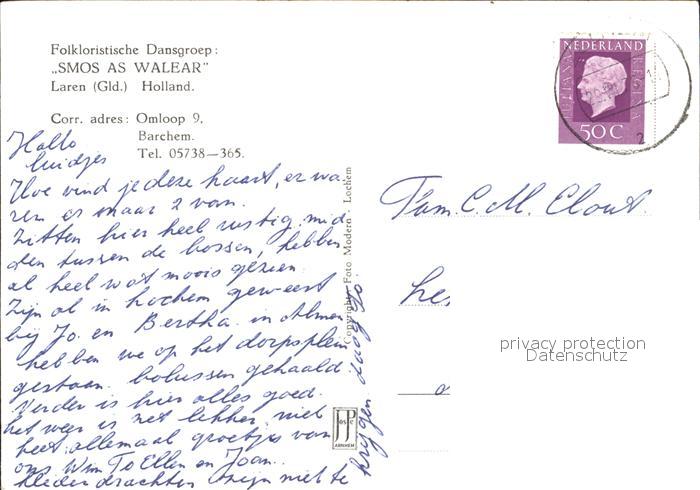 Folkloristische Dansgroep:
„SMOS AS WALEAR”
Laren (Gld.) Holland.
Corr. adres: Omloop 9,
Barchem.
Tel. 05738—365.
Hallo
luidjes
Hoe vind je deze kaart, er wa-
ren er maar 2 van.
Zitten hier heel rustig mid-
den tussen de bossen, hebben
al heel wat moois gezien.
Zijn al in Lochem geweest
bij Jo. en Bertha. in Almen
hebben we op het dorpsplein
gestaan. bolussen gehaald.
Verder is hier alles goed.
het weer is net lekker, niet
heet. allemaal groetjes van
ons Wim To Ellen en Joan.
klederdrachten zijn niet te
krijgen
Copyright: Foto Modern Lochem
JP
ARNHEM
NEDERLAND
JULIANA
REGINA
50 C
2
Fam. C. M. Clout.
privacy protection
Datenschutz